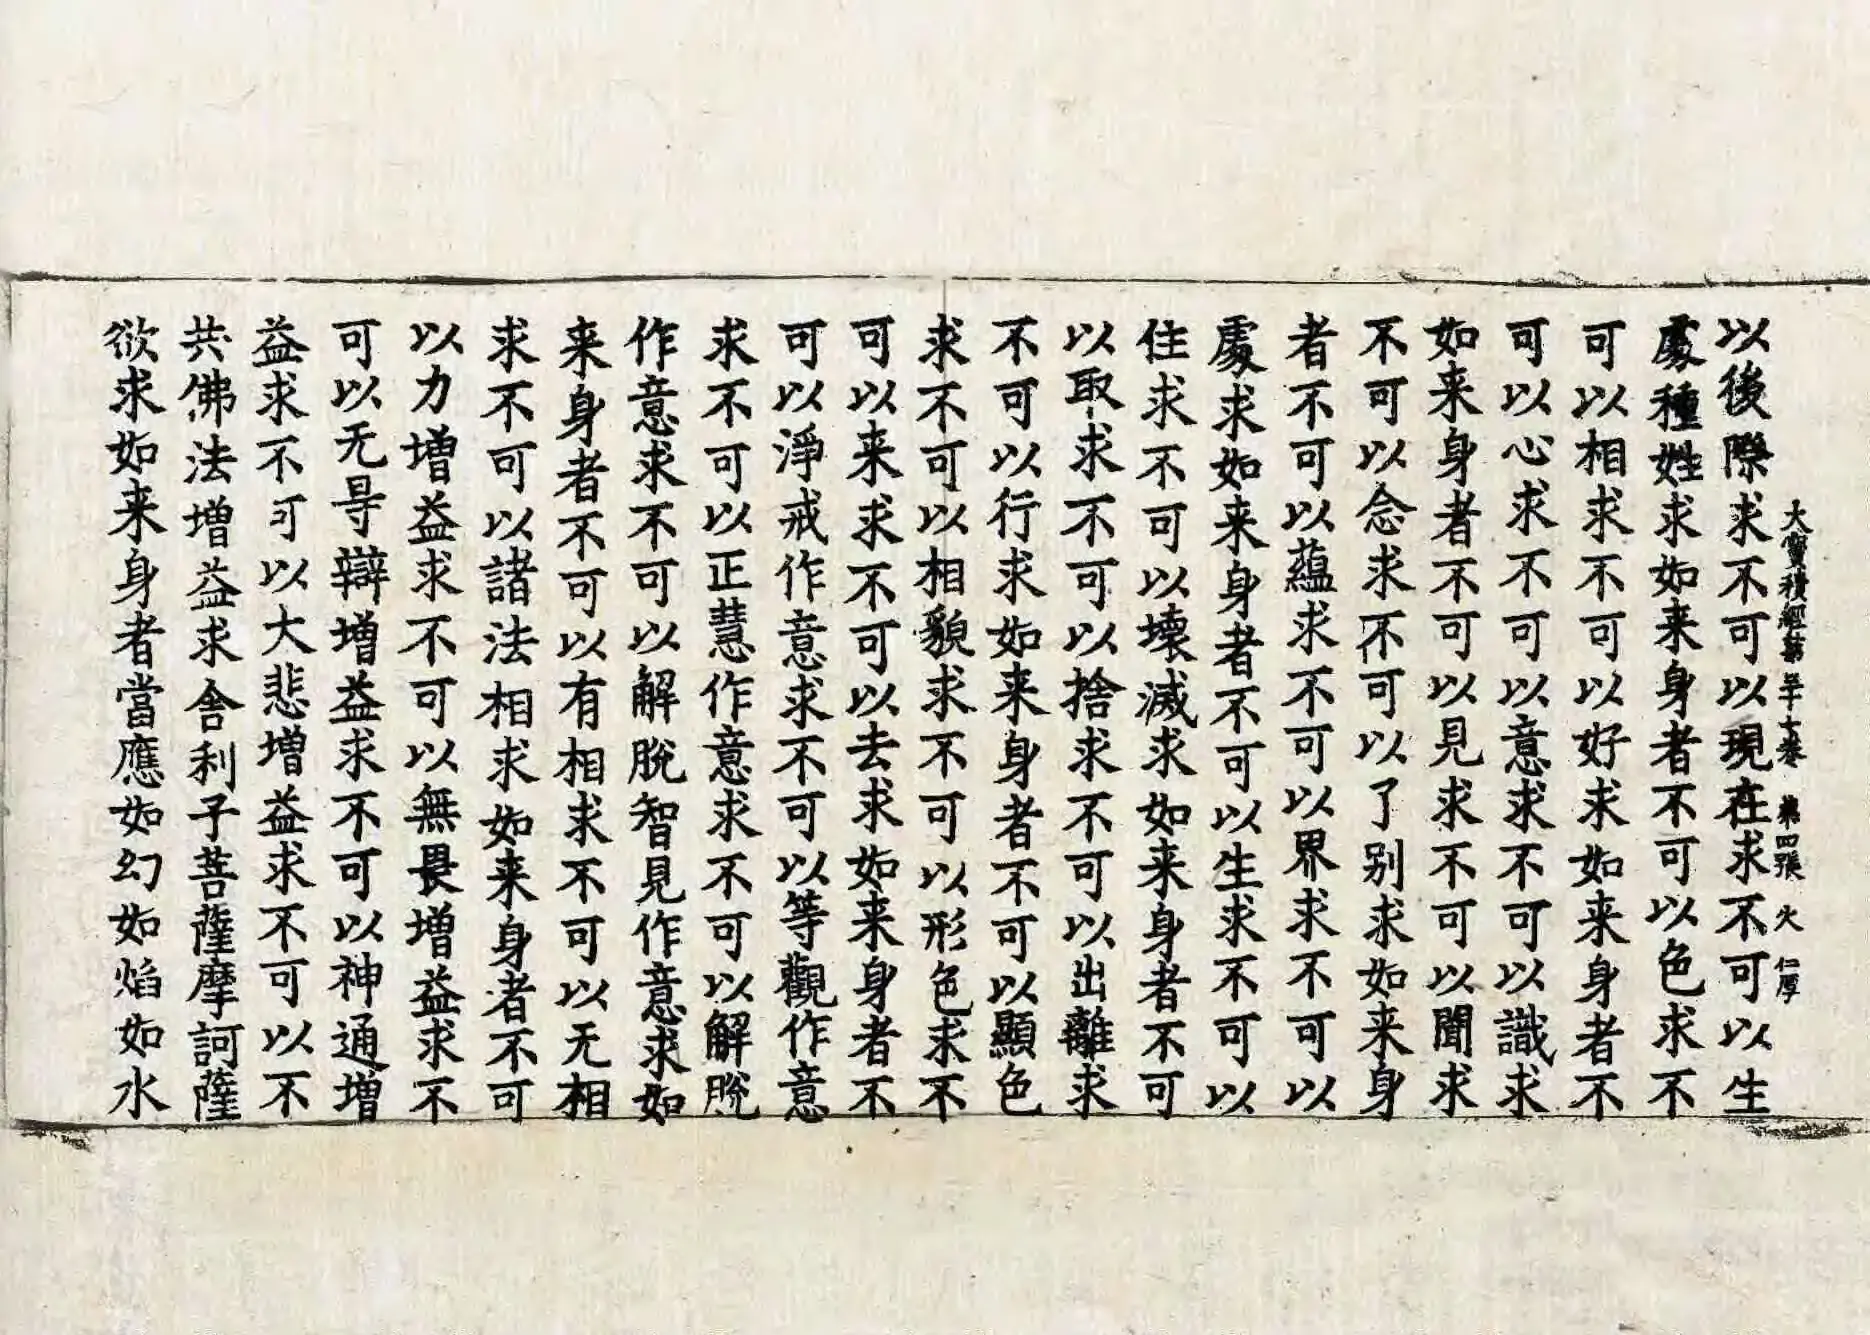 大寶積經第三十七卷 第四張 火 仁厚
以後際求不可以現在求不可以生
處種姓求如来身者不可以色求不
可以相求不可以好求如来身者不
可以心求不可以意求不可以識求
如来身者不可以見求不可以聞求
不可以念求不可以了别求如来身
者不可以蘊求不可以界求不可以
處求如来身者不可以生求不可以
住求不可以壞滅求如来身者不可
以取求不可以捨求不可以出離求
不可以行求如来身者不可以顯色
求不可以相貌求不可以形色求不
可以来求不可以去求如来身者不
可以淨戒作意求不可以等觀作意
求不可以正慧作意求不可以解脫
作意求不可以解脫智見作意求如
来身者不可以有相求不可以无相
求不可以諸法相求如来身者不可
以力增益求不可以無畏增益求不
可以无㝵辯增益求不可以神通增
益求不可以大悲增益求不可以不
共佛法增益求舍利子菩薩摩訶薩
欲求如来身者當應如幻如焰如水